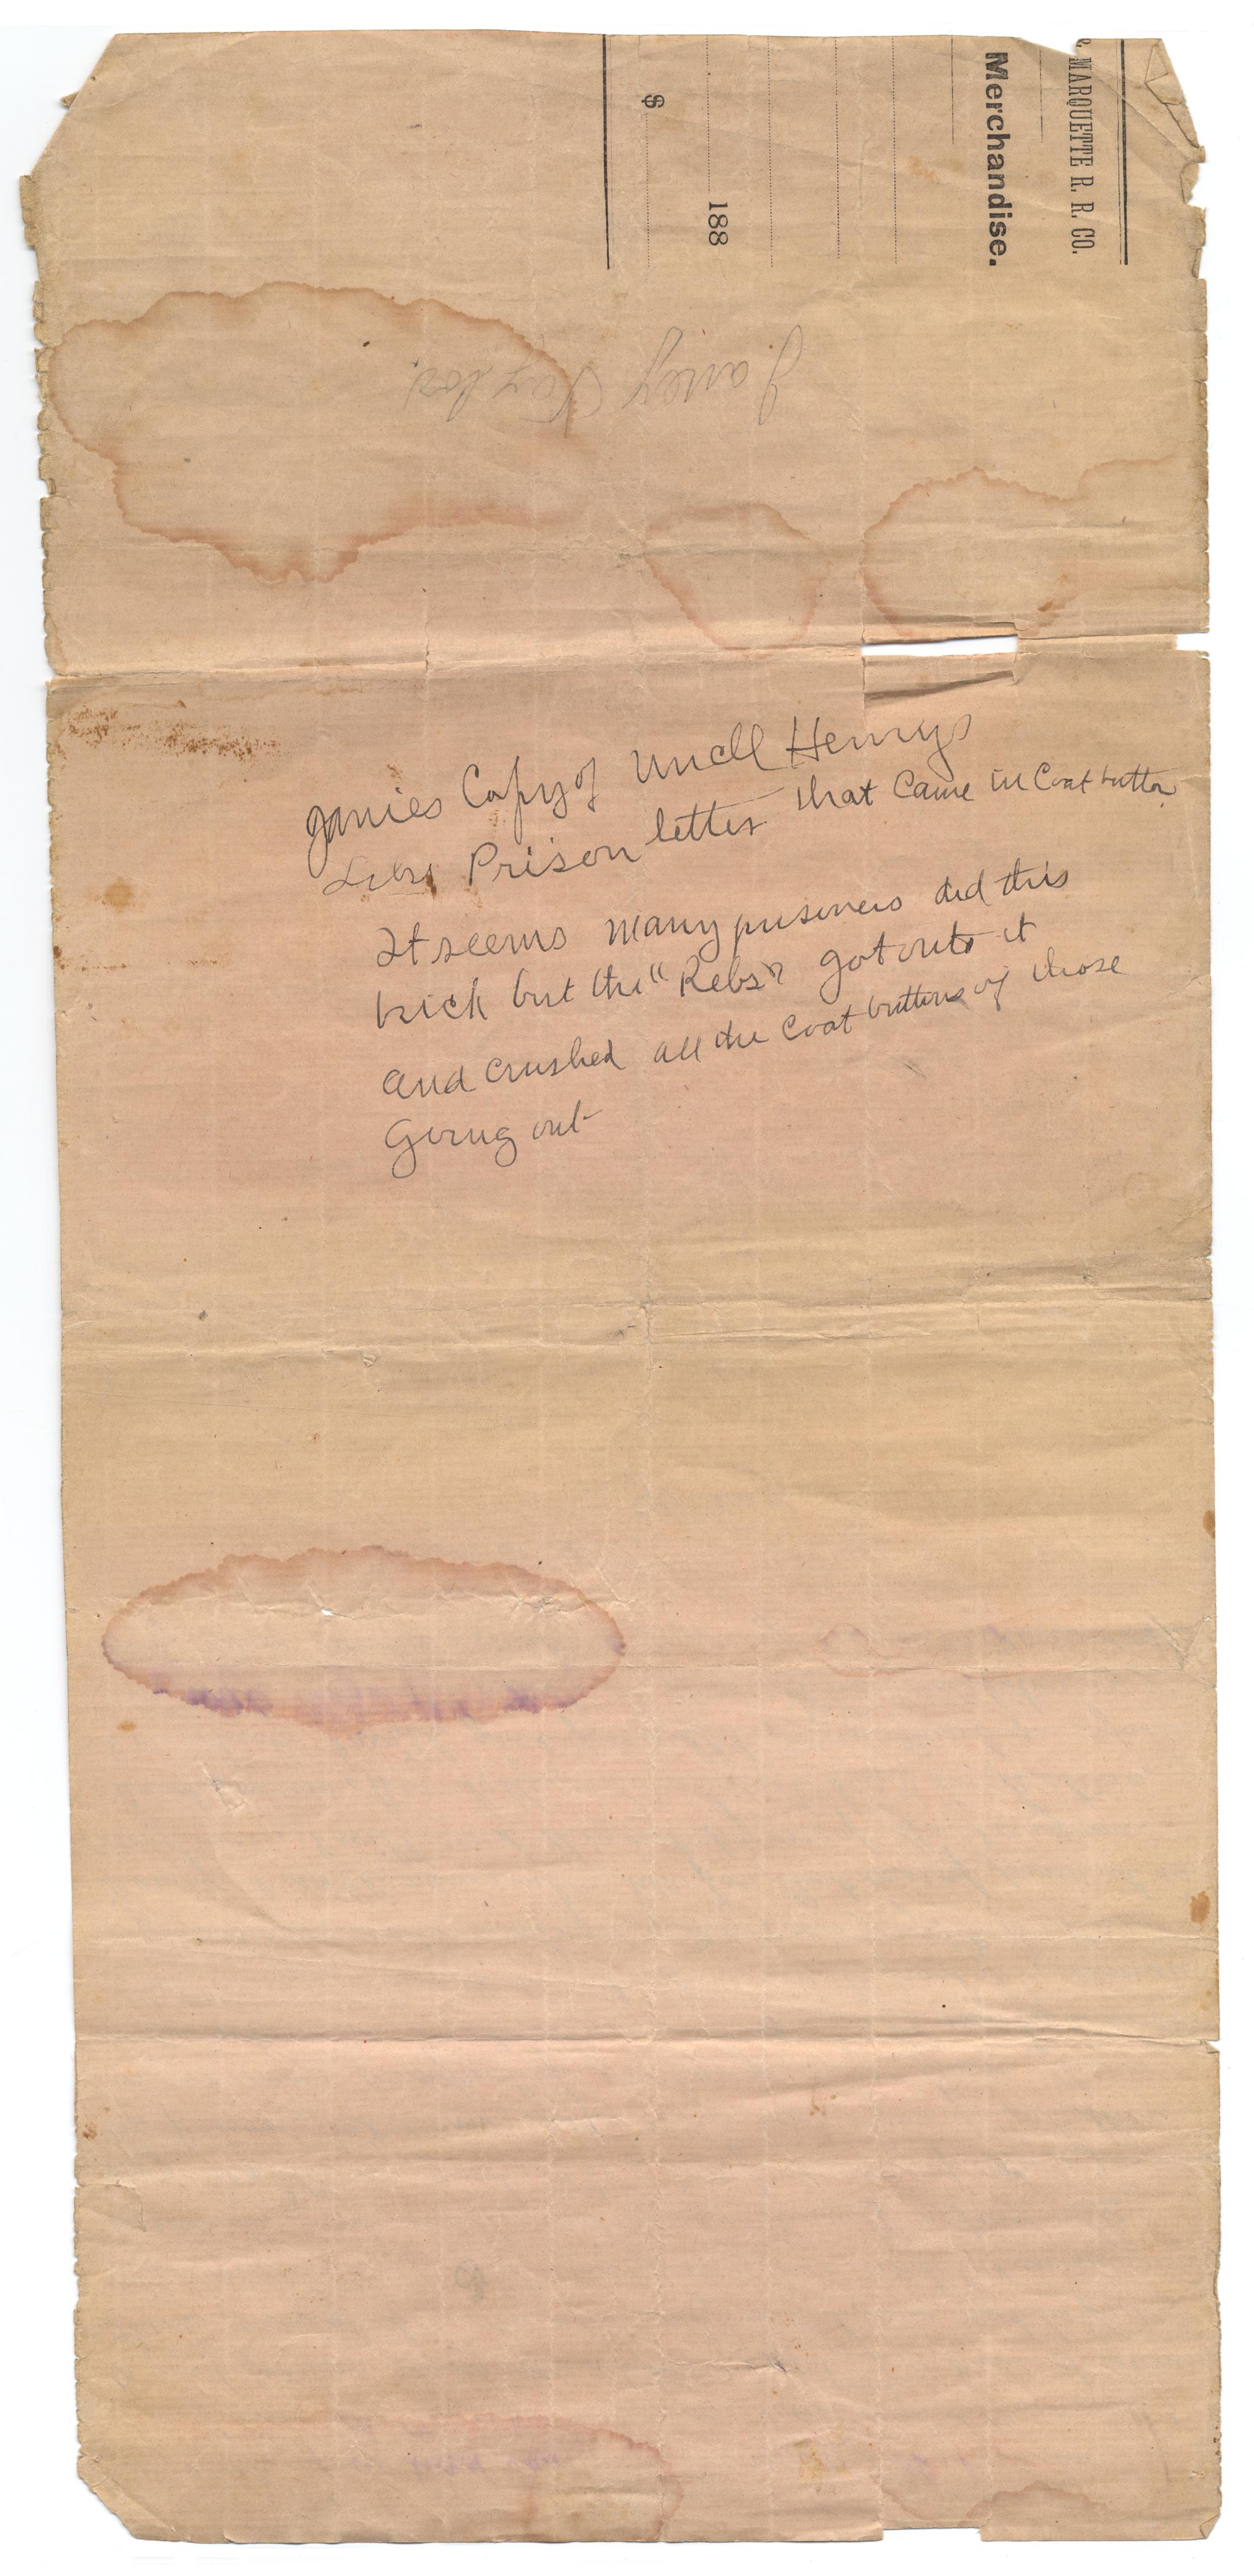 MARQUETTE R. R. CO.
Merchandise.
188
$
Janey Taylor.
Janies Copy of Uncll Henrys
Libi Prison letter that Came in Coat button
It seems many prisoners did this
trick but the "Rebs" got onto it
and crushed all the Coat buttons of those
Going out